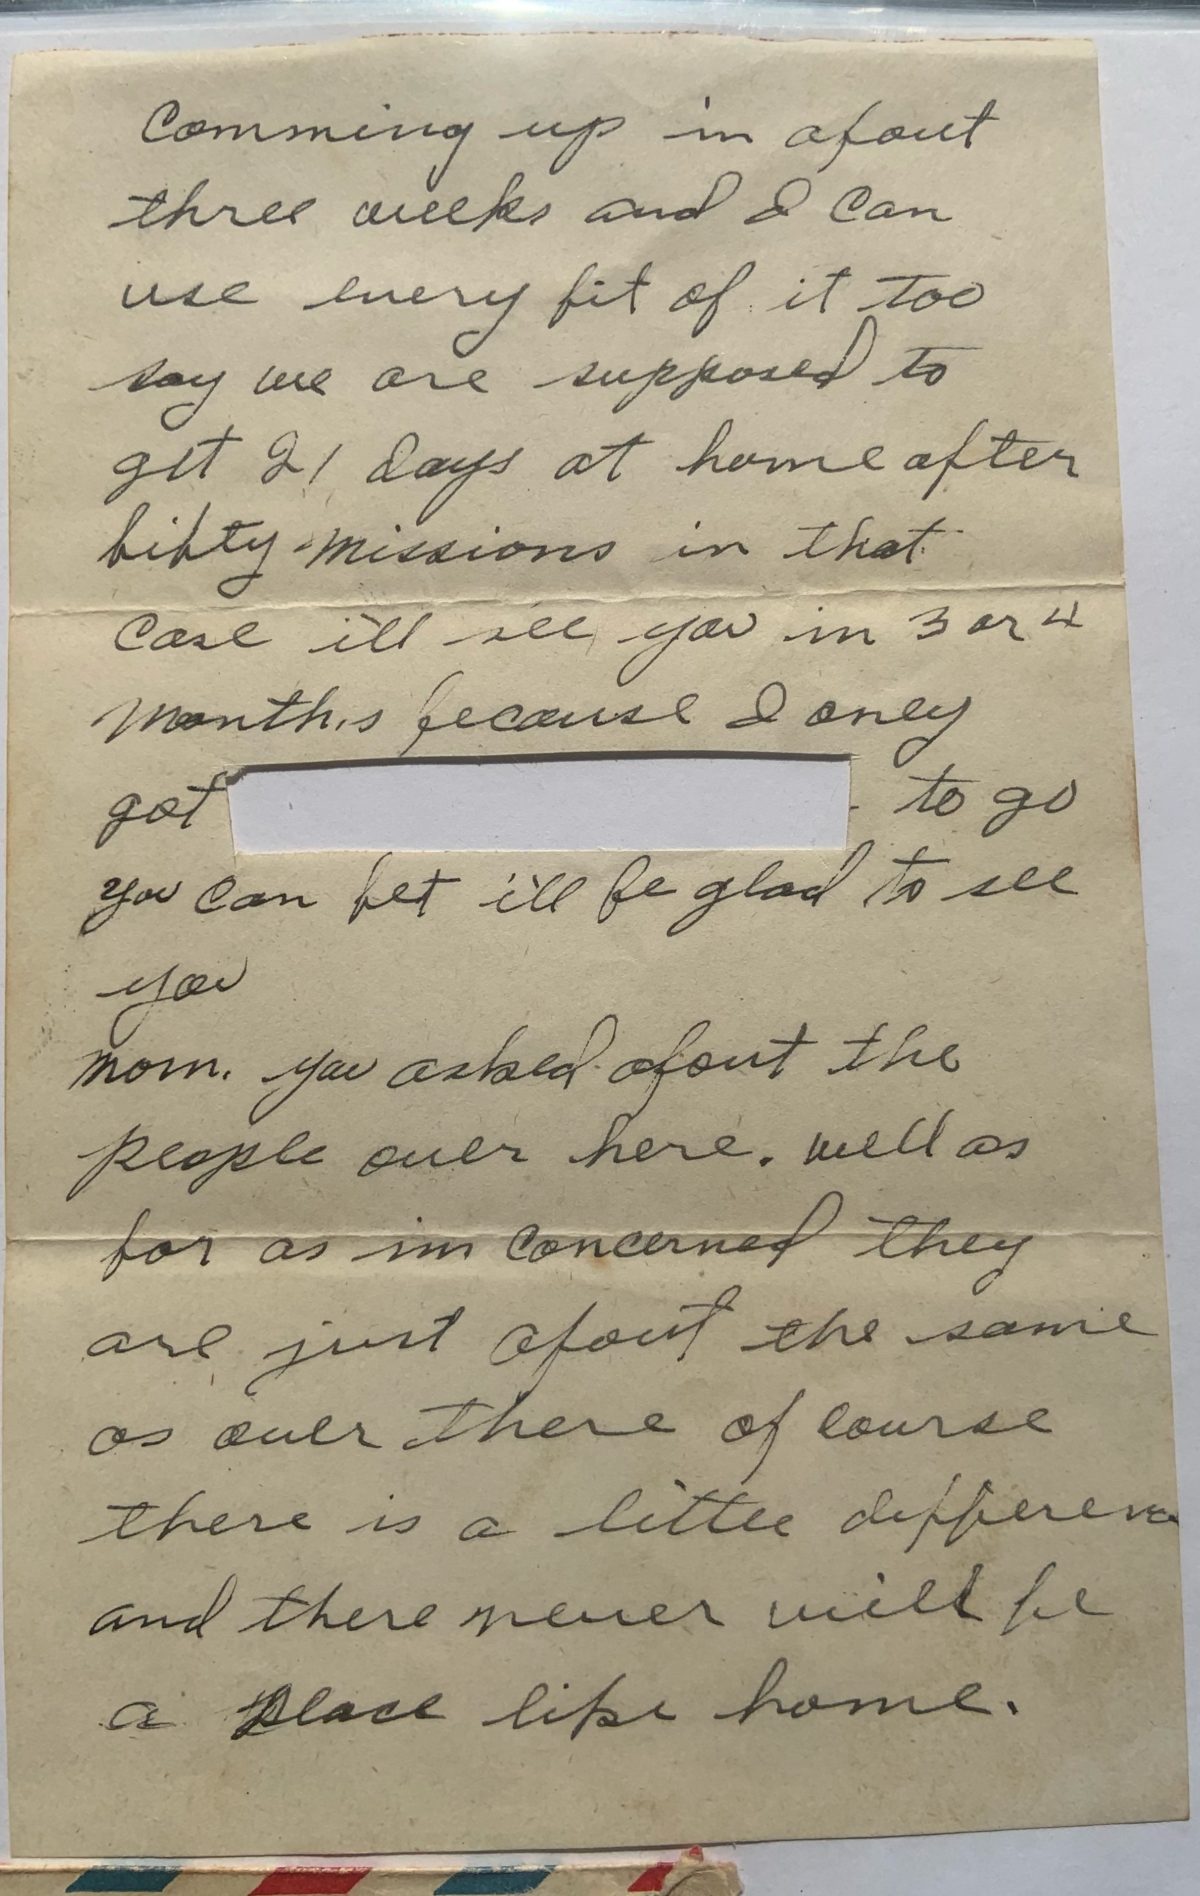 Comming up in about
three weeks and I can
use every bit of it too
say we are supposed to
get 21 days at home after
fifty missions in that
case i'll see you in 3 or 4
months because I oney
got to go
you can bet i'll be glad to see
you
mom. you asked about the
people over here. well as
for as im concerned they
are just about the same
as over there of course
there is a little difference
and there never will be
a place like home.